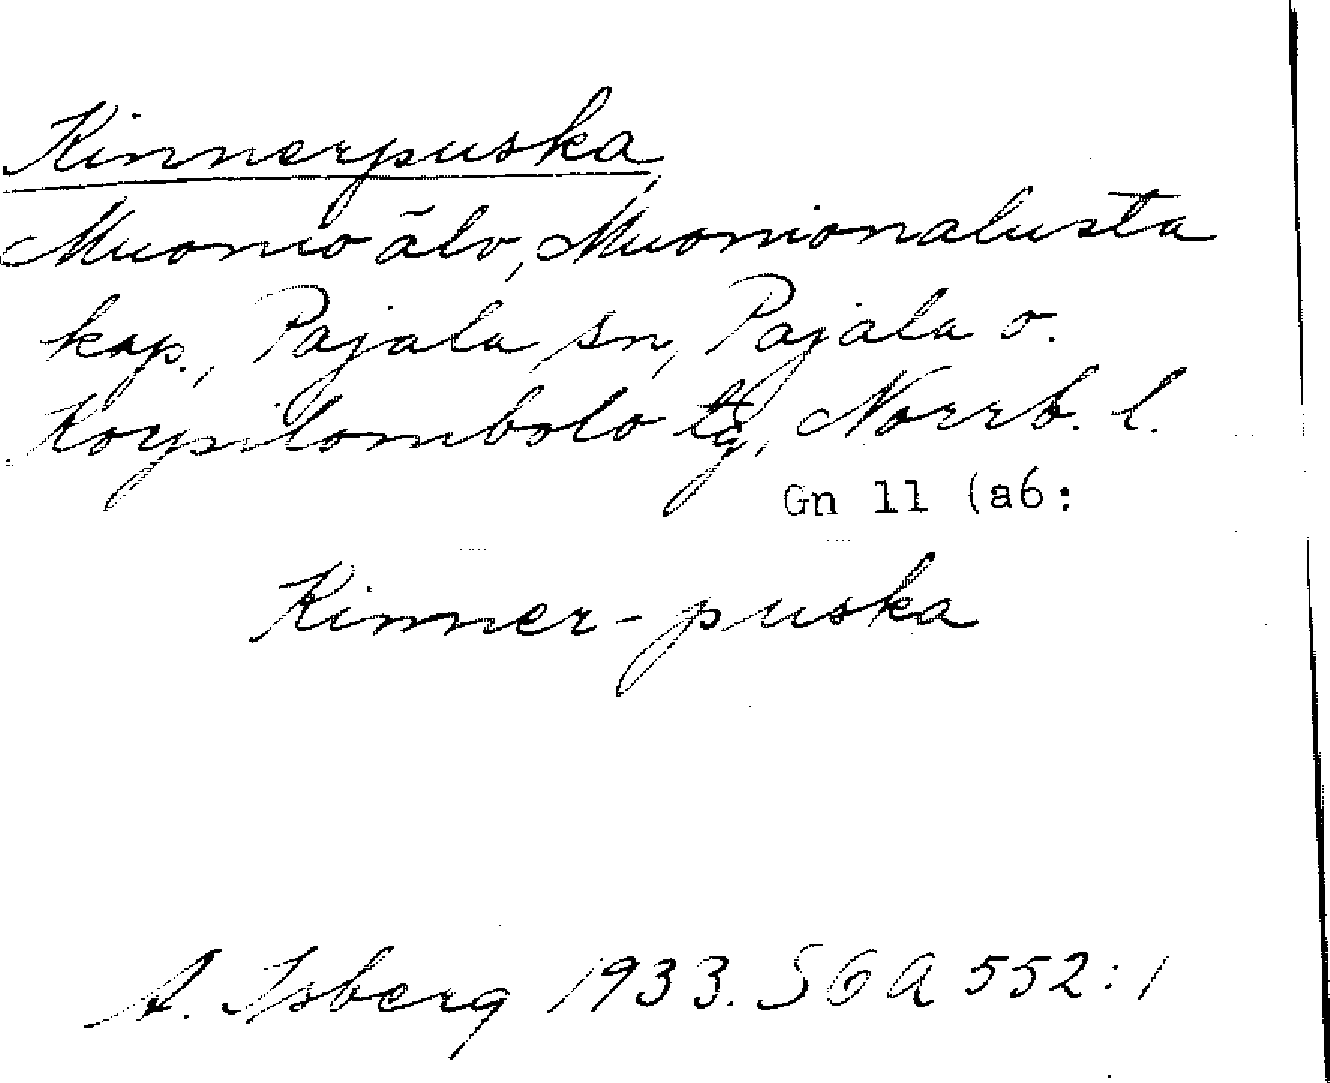 Kinnerpuska,
Muonio älv, Muonionalusta
kap., Pajala sn, Pajala o.
Korpilombolo tg, Norrb. l.
Gn 11 (a6:
Kinner-puska
A. Isberg 1933. SGA 552:1